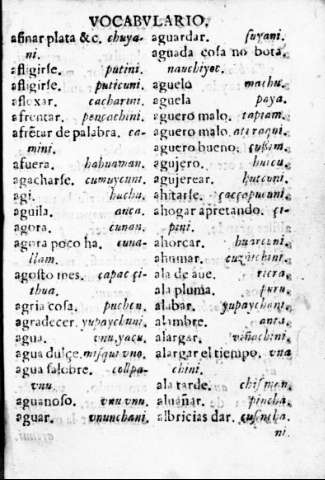 VOCABVLARIO.
afinar plata &c. chuya-
ni.
afligirse. putini.
afligirse. puticuni.
afloxar. cacharini.
afrentar. pencachini.
afrētar de palabra. ca-
mini.
afuera. hahuaman.
agacharse. cumuycuni.
agi. huchu.
aguila. anca.
agora. cunan.
agora poco ha. cuna-
llam.
agosto mes. çapac çi-
thua.
agria cosa. puchcu.
agradecer. yupaychuni.
agua. vnu, yacu.
agua dulçe. misqui vno.
agua salobre. collpa-
vnu.
aguanoso. vnu vnu.
aguar. vnunchani.
aguardar. suyani.
aguada cosa no bota.
nauchiyoc.
aguelo machu.
aguela paya.
aguero malo. tapiam.
aguero malo. atitaqui.
aguero bueno. çussim.
agujero. huicu.
agujerear. hutcuni.
ahitarse. çacçapucuni.
ahogar apretando. çi-
pini.
ahorcar. huarcuni.
ahumar. cuzñichini.
ala de aue. ricra.
ala pluma. puru.
alabar. yupaychani.
alambre. anta.
alargar. viñachini.
alargar el tiempo. vna
chini.
ala tarde. chisman.
aluañar. pincha.
albricias dar. cusncha.
ni.